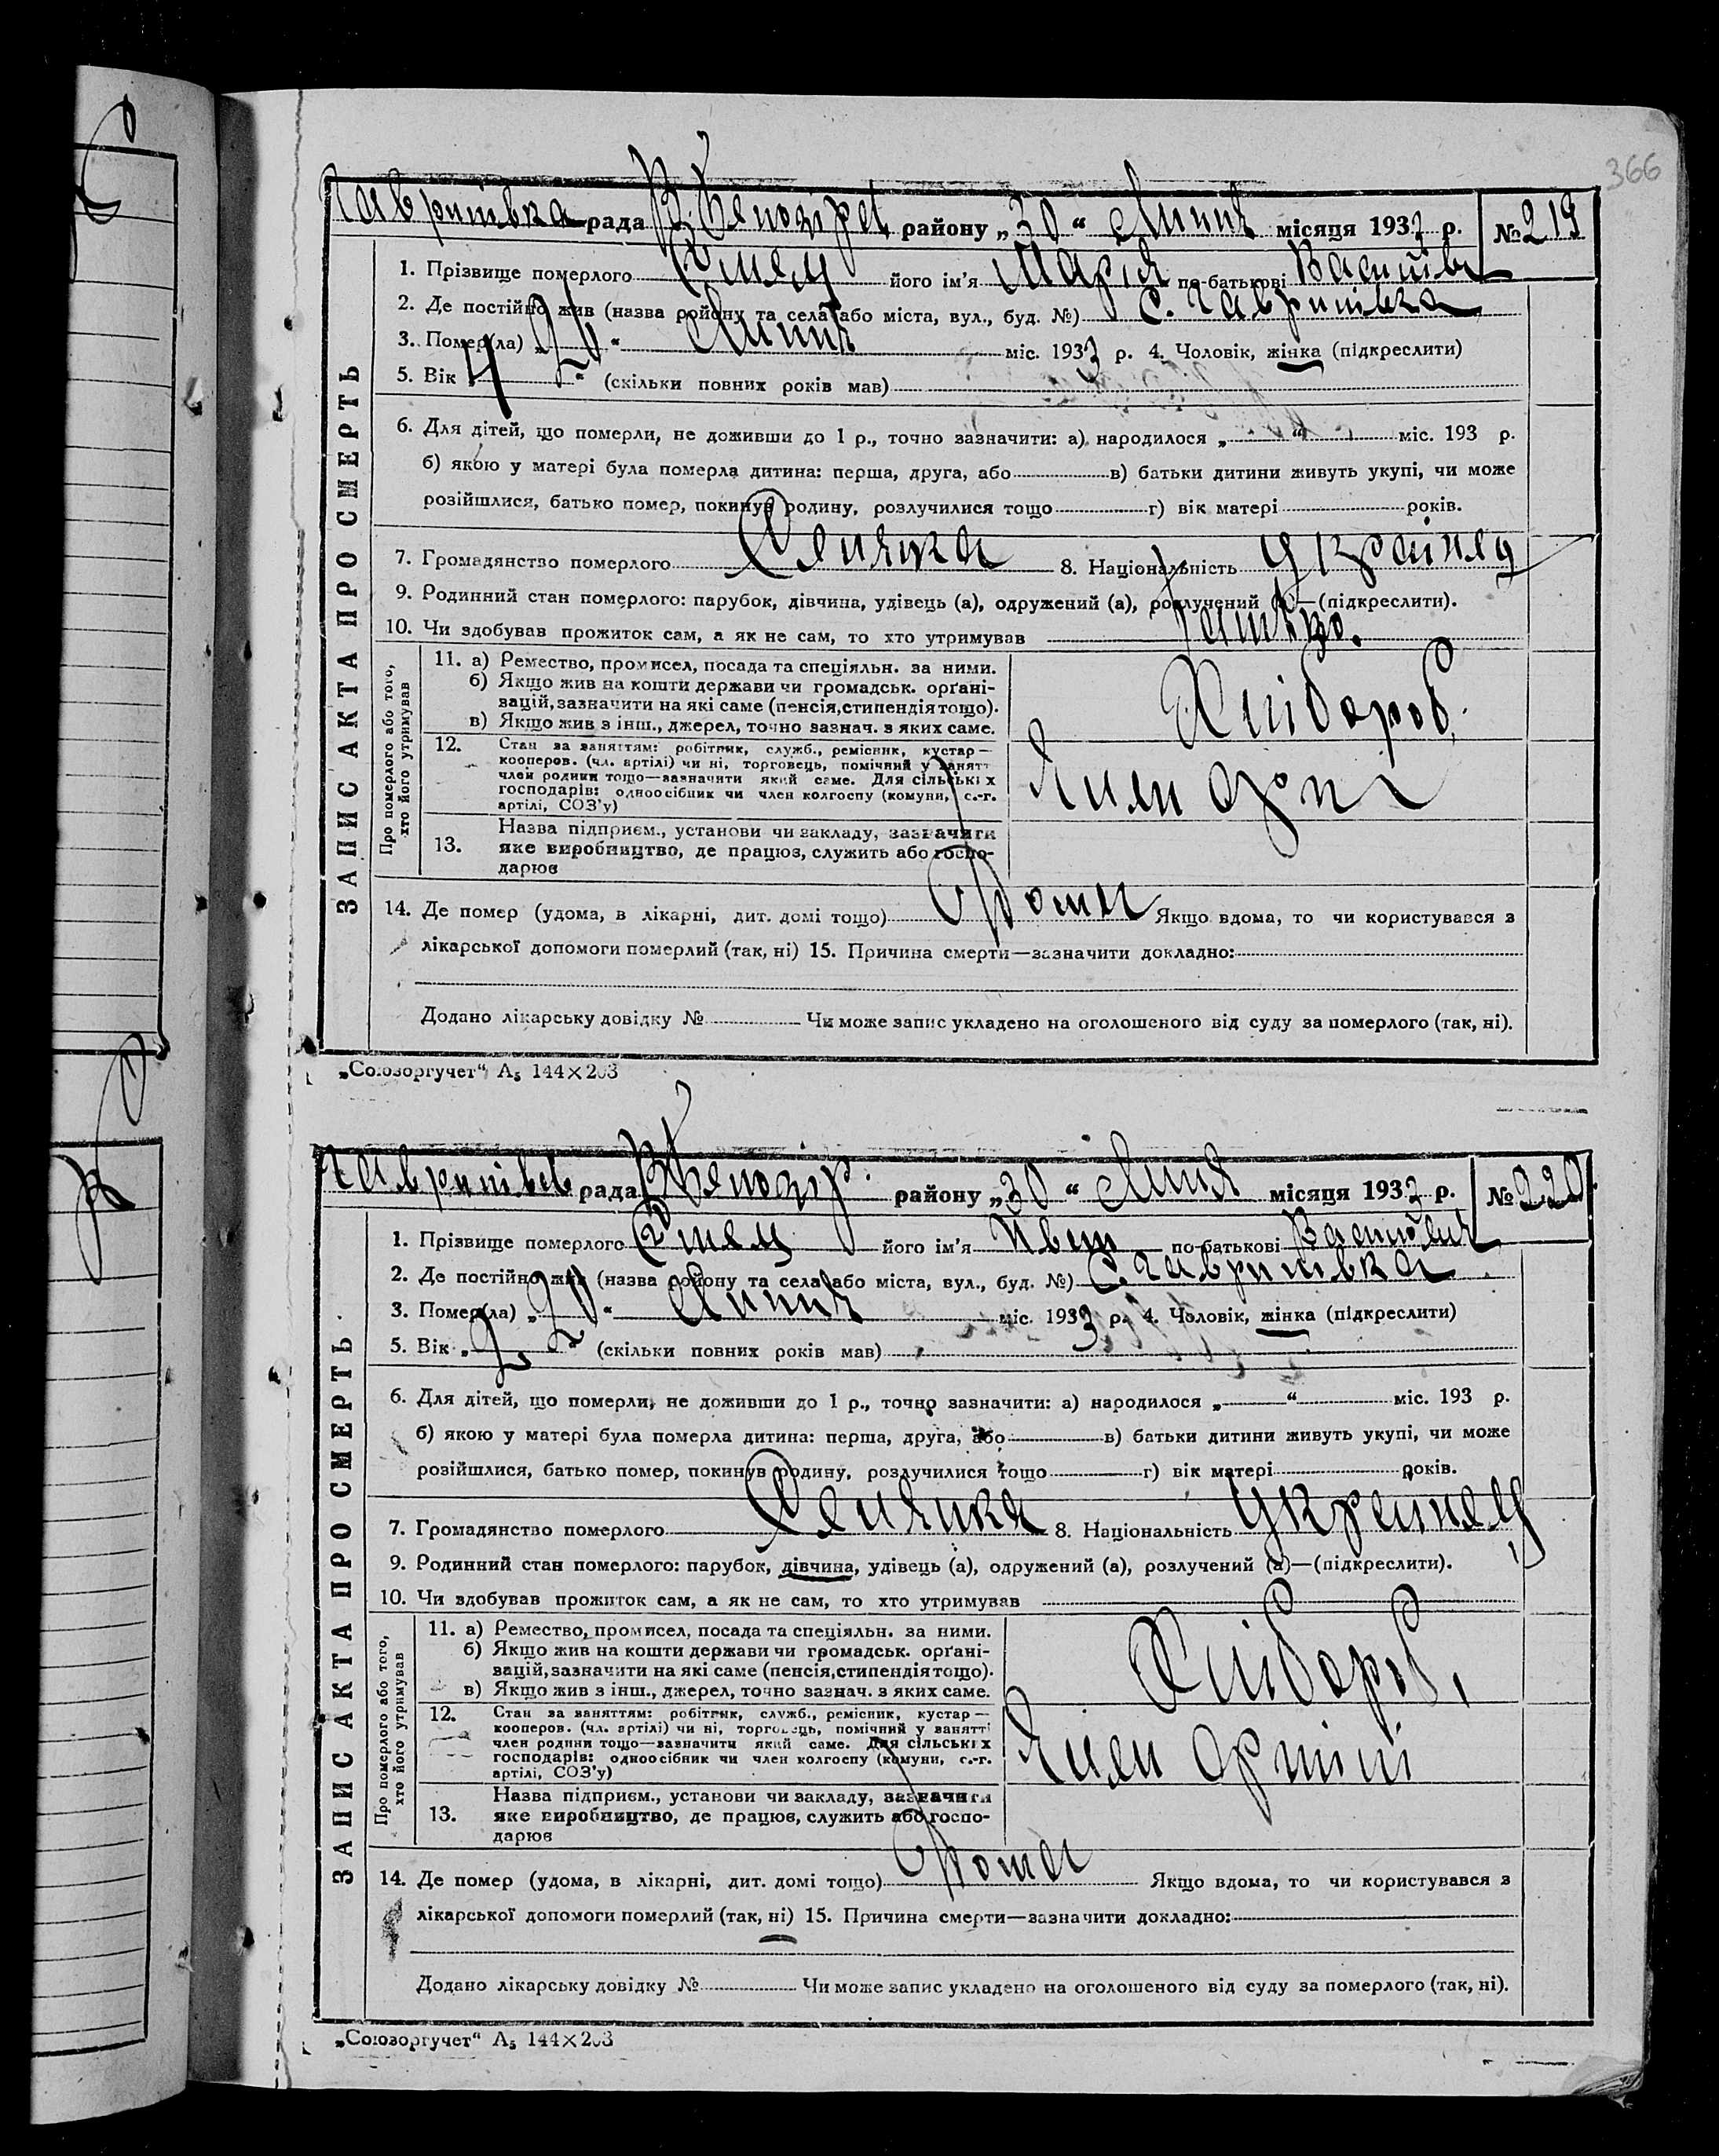 366
Гавришівка рада району „30“ Липня місяця 1933 р. № 219
1. Прізвище померлого його ім'я Марія по-батькові Васил
2. Де постійно жив (назва району та села або міста, вул., буд. №) с. Гавришівка
3. Помер(ла) „20“ Липня міс. 1933 р. 4. Чоловік, жінка (підкреслити)
5. Вік „4“ (скільки повних років мав)
6. Для дітей, що померли, не доживши до 1 р., точно зазначити: а) народилося „ “ міс. 193 р.
б) якою у матері була померла дитина: перша, друга, або в) батьки дитини живуть укупі, чи може
розійшлися, батько помер, покинув родину, розлучилися тощо г) вік матері років.
7. Громадянство померлого Селянка 8. Національність Українец
9. Родинний стан померлого: парубок, дівчина, удівець (а), одружений (а), розлучений (а)—(підкреслити).
10. Чи здобував прожиток сам, а як не сам, то хто утримував батько.
ЗАПИС АКТА ПРО СМЕРТЬ
Про померлого або того,
хто його утримував
11. а) Ремество, промисел, посада та спеціяльн. за ними.
б) Якщо жив на кошти держави чи громадськ. орґані-
зацій, зазначити на які саме (пенсія, стипендія тощо).
в) Якщо жив з інш., джерел, точно зазнач. з яких саме.
Хлібороб.
12. Стан за заняттям: робітник, служб., ремісник, кустар—
кооперов. (чл. артілі) чи ні, торговець, помічний у занятт
член родини тощо—зазначити який саме. Для сільських
господарів: одноосібник чи член колгоспу (комуни, с.-г.
артілі, СОЗ'у)
Член
13. Назва підприєм., установи чи закладу, зазначити
яке виробництво, де працює, служить або госпо-
дарює
14. Де помер (удома, в лікарні, дит. домі тощо) Дома Якщо вдома, то чи користувався з
лікарської допомоги померлий (так, ні) 15. Причина смерти—зазначити докладно:
Додано лікарську довідку № Чи може запис укладено на оголошеного від суду за померлого (так, ні).
„Союзоргучет“ А₅ 144×203
рада району „30“ Липня місяця 1933 р. № 220
1. Прізвище померлого його ім'я по-батькові
2. Де постійно жив (назва району та села або міста, вул., буд. №) с. Гавришівка
3. Помер(ла) „20“ Липня міс. 1933 р. 4. Чоловік, жінка (підкреслити)
5. Вік „2“ (скільки повних років мав)
6. Для дітей, що померли, не доживши до 1 р., точно зазначити: а) народилося „ “ міс. 193 р.
б) якою у матері була померла дитина: перша, друга, або в) батьки дитини живуть укупі, чи може
розійшлися, батько помер, покинув родину, розлучилися тощо г) вік матері років.
7. Громадянство померлого Селянка 8. Національність Українец
9. Родинний стан померлого: парубок, дівчина, удівець (а), одружений (а), розлучений (а)—(підкреслити).
10. Чи здобував прожиток сам, а як не сам, то хто утримував
ЗАПИС АКТА ПРО СМЕРТЬ
Про померлого або того,
хто його утримував
11. а) Ремество, промисел, посада та спеціяльн. за ними.
б) Якщо жив на кошти держави чи громадськ. орґані-
зацій, зазначити на які саме (пенсія, стипендія тощо).
в) Якщо жив з інш., джерел, точно зазнач. з яких саме.
Хлібороб,
12. Стан за заняттям: робітник, служб., ремісник, кустар—
кооперов. (чл. артілі) чи ні, торговець, помічний у занятті
член родини тощо—зазначити який саме. Для сільських
господарів: одноосібник чи член колгоспу (комуни, с.-г.
артілі, СОЗ'у)
Член артілі
13. Назва підприєм., установи чи закладу, зазначити
яке виробництво, де працює, служить або госпо-
дарює
14. Де помер (удома, в лікарні, дит. домі тощо) Дома Якщо вдома, то чи користувався з
лікарської допомоги померлий (так, ні) 15. Причина смерти—зазначити докладно:
Додано лікарську довідку № Чи може запис укладено на оголошеного від суду за померлого (так, ні).
„Союзоргучет“ А₅ 144×203